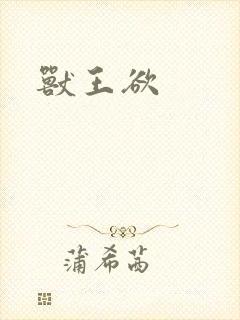 獸王欲
蒲希茜